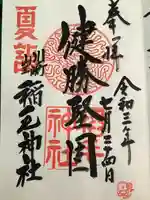 奉拝
令和三年
七月二十四日
健勝堅固
夏詣
稲毛神社